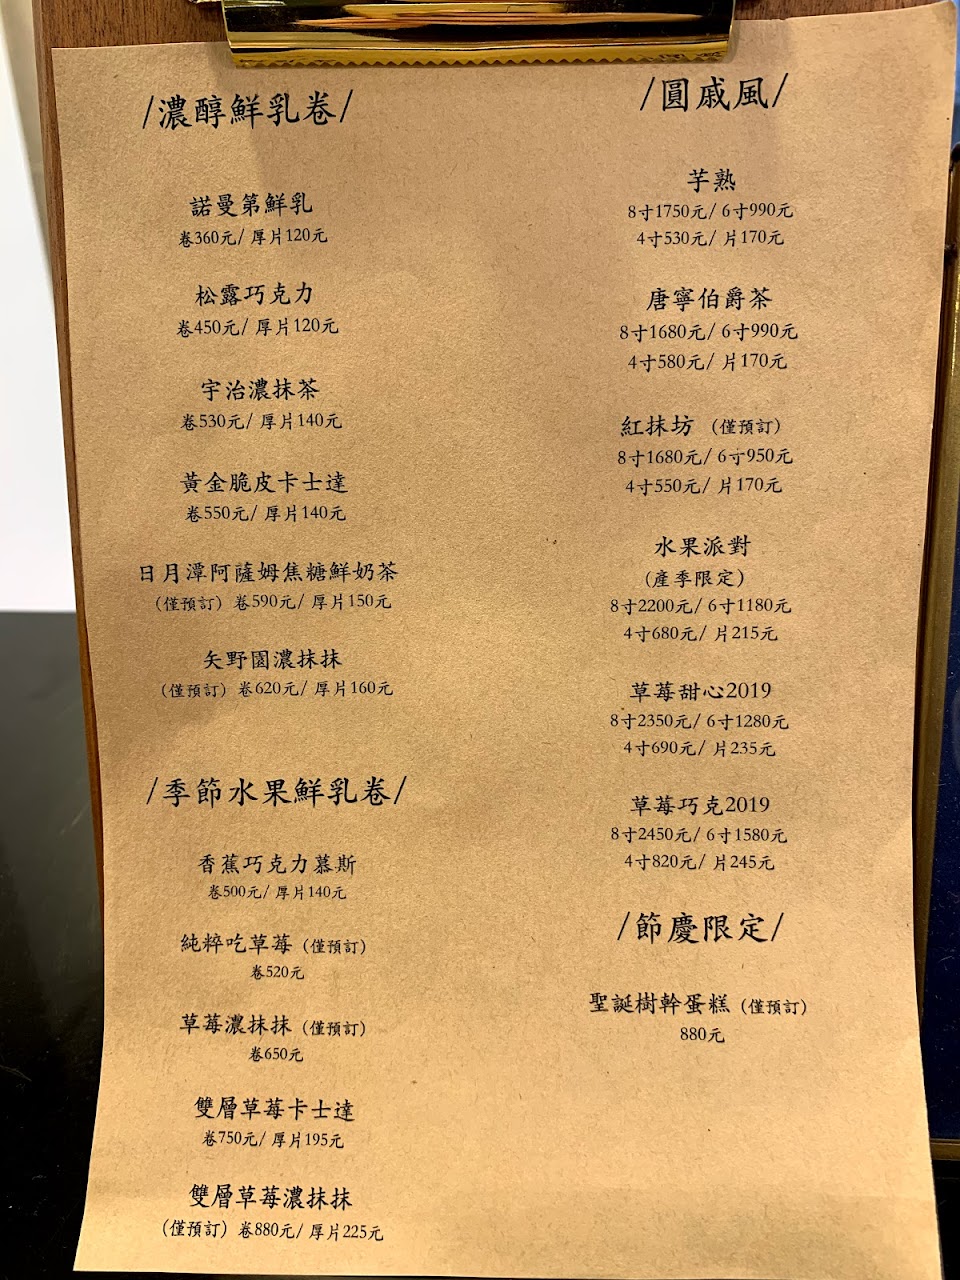 /濃醇鮮乳卷/
諾曼第鮮乳
卷360元/ 厚片120元
松露巧克力
卷450元/ 厚片120元
宇治濃抹茶
卷530元/ 厚片140元
黃金脆皮卡士達
卷550元/ 厚片140元
日月潭阿薩姆焦糖鮮奶茶
（僅預訂）卷590元/ 厚片150元
矢野園濃抹抹
（僅預訂）卷620元/ 厚片160元
/季節水果鮮乳卷/
香蕉巧克力慕斯
卷500元/ 厚片140元
純粹吃草莓（僅預訂）
卷520元
草莓濃抹抹（僅預訂）
卷650元
雙層草莓卡士達
卷750元/ 厚片195元
雙層草莓濃抹抹
（僅預訂）卷880元/ 厚片225元
/圓戚風/
芋熟
8寸1750元/ 6寸990元
4寸530元/ 片170元
唐寧伯爵茶
8寸1680元/ 6寸990元
4寸580元/ 片170元
紅抹坊（僅預訂）
8寸1680元/ 6寸950元
4寸550元/ 片170元
水果派對
（產季限定）
8寸2200元/ 6寸1180元
4寸680元/ 片215元
草莓甜心2019
8寸2350元/ 6寸1280元
4寸690元/ 片235元
草莓巧克2019
8寸2450元/ 6寸1580元
4寸820元/ 片245元
/節慶限定/
聖誕樹幹蛋糕（僅預訂）
880元